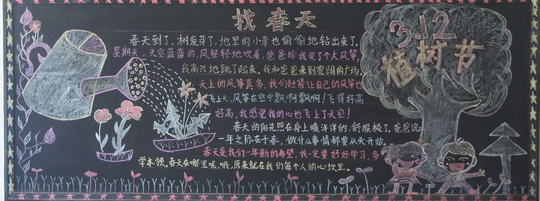 找春天
春天到了，树发芽了，地里的小草也偷偷地钻出来了。
星期天，天空蓝蓝的，风轻轻地吹着，爸爸给我买了个大风筝，
我高兴地跳了起来。我和爸爸来到宽阔的广场，
天上的风筝真多，我们赶紧让自己的风筝也
飞上天，风筝在空中飘啊飘啊！飞得好高
好高，我感觉我的心也飞上了天空！
春天的阳光照在身上暖洋洋的，舒服极了，爸爸说
一年之际在于春，做什么事情都要从头开始。
春天是我们一年新的希望，我一定要好好学习，多
学本领。春天在哪里呢，哦，原来就在我们每个人的心坎里。
3·12
植树节